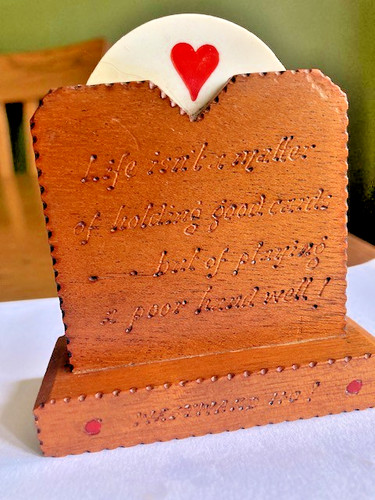 Life isn't a matter
of holding good cards
.. but of playing
a poor hand well!